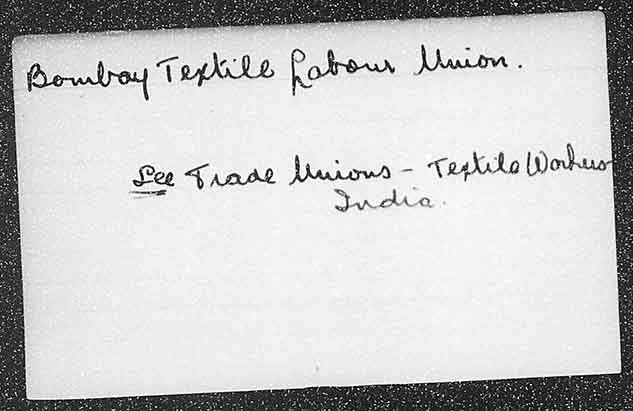 Bombay Textile Labour Union.
See Trade Unions - Textile Workers
India.